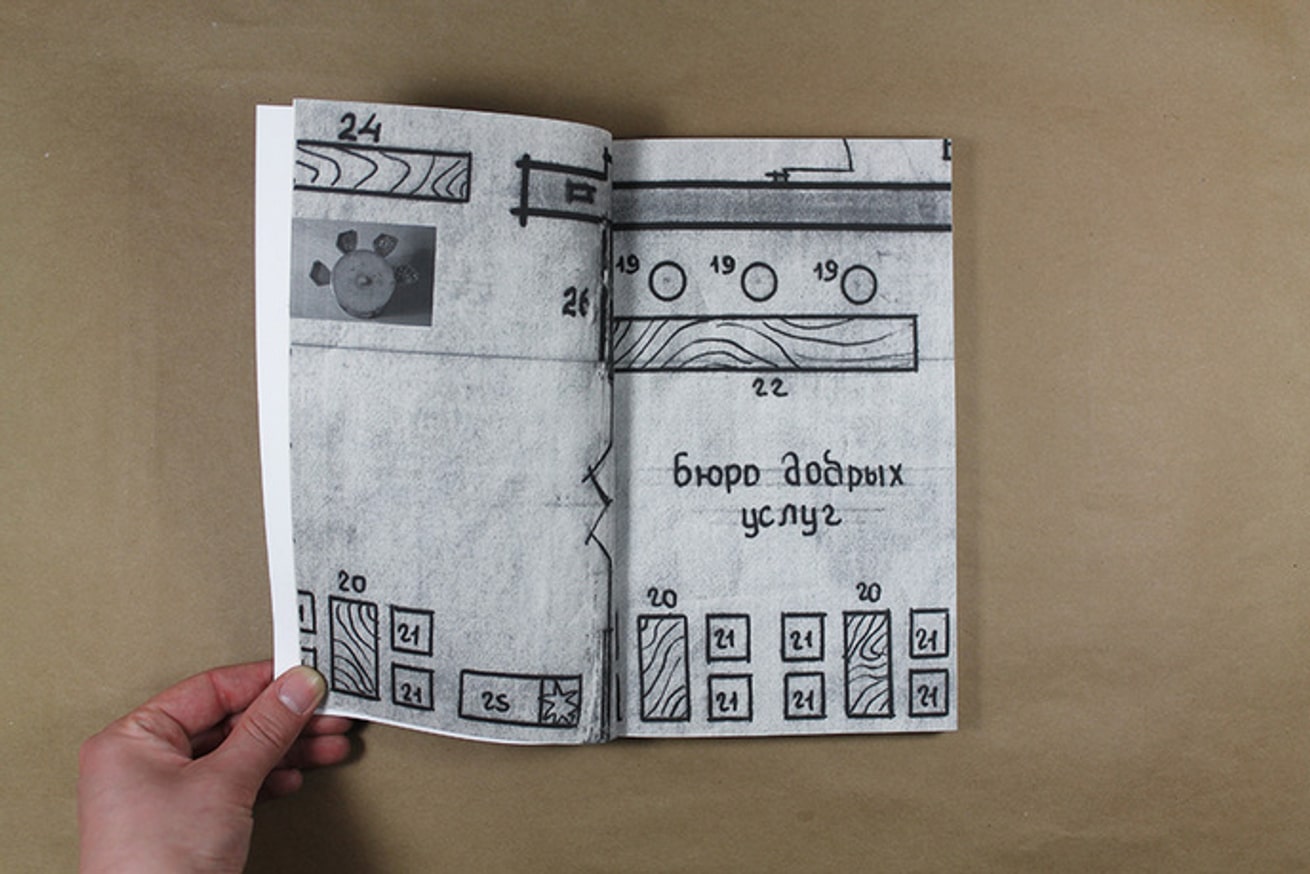 24
26
20
21
21
25
19 19 19
22
бюро добрых
услуг
20 20
21 21 21
21 21 21